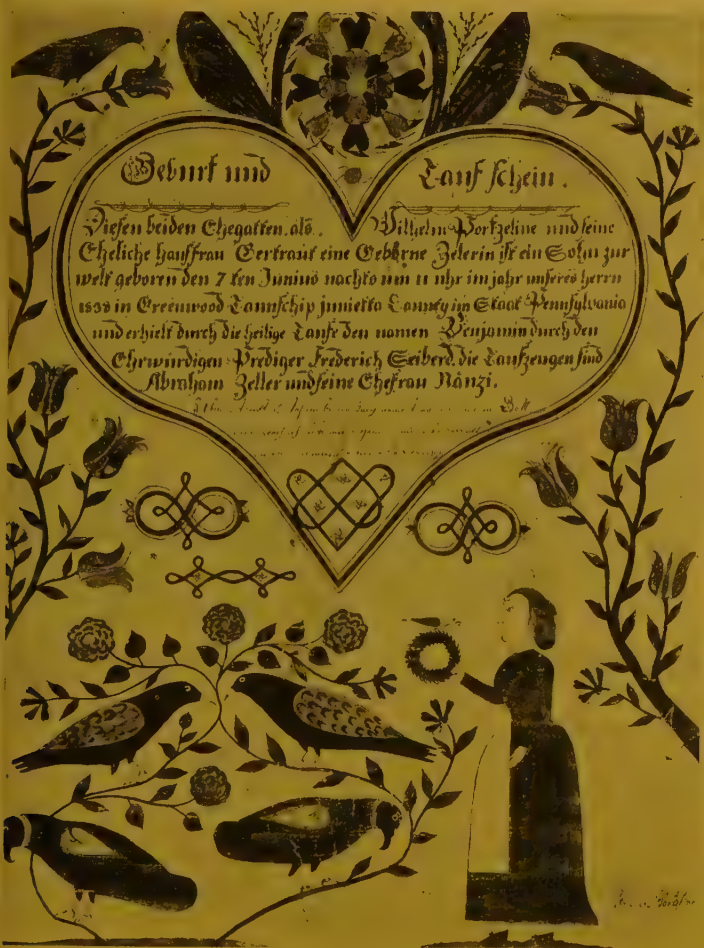 Geburt und Tauf schein.
Diesen beiden Ehegatten. als. Wilhelm Portzeline und seine
Eheliche Hauffrau Gertraut eine Gebhrne Zelerin ist ein Sohn zur
welt geboren den 7 ten Junius nachts um 11 uhr im jahr unseres herrn
1838 in Greenwood Taunschip junietta Caunty im Staat Pennsylvania
und erhielt durch die heilige Taufe den namen Benjamin durch den
Ehrwürdigen Prediger Frederich Seiberd. die Taufzeugen sind
Abraham Zeller und seine Ehefrau Nänzi.